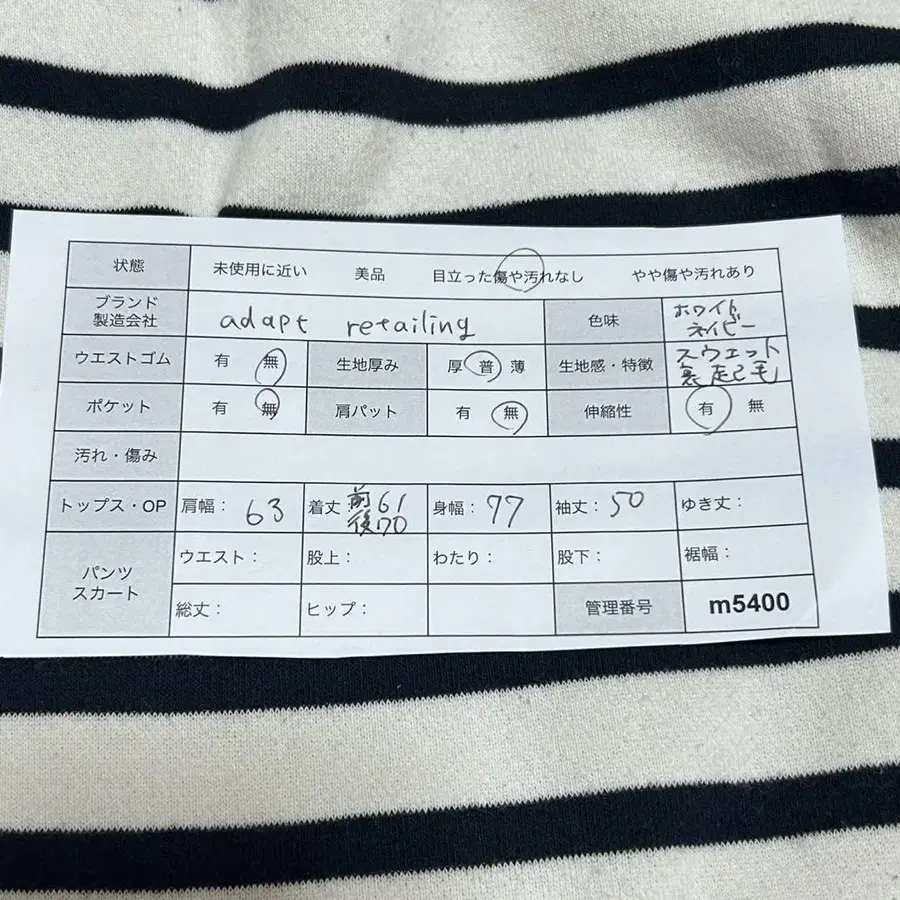 状態 未使用に近い 美品 目立った傷や汚れなし やや傷や汚れあり
ブランド
製造会社
adapt retailing
色味
ホワイト
ネイビー
ウエストゴム 有 無 生地厚み 厚 普 薄 生地感・特徴
スウェット
裏起毛
ポケット 有 無 肩パット 有 無 伸縮性 有 無
汚れ・傷み
トップス・OP 肩幅: 63 着丈: 前61
後70
身幅: 77 袖丈: 50 ゆき丈:
パンツ
スカート
ウエスト: 股上: わたり: 股下: 裾幅:
総丈: ヒップ: 管理番号 m5400